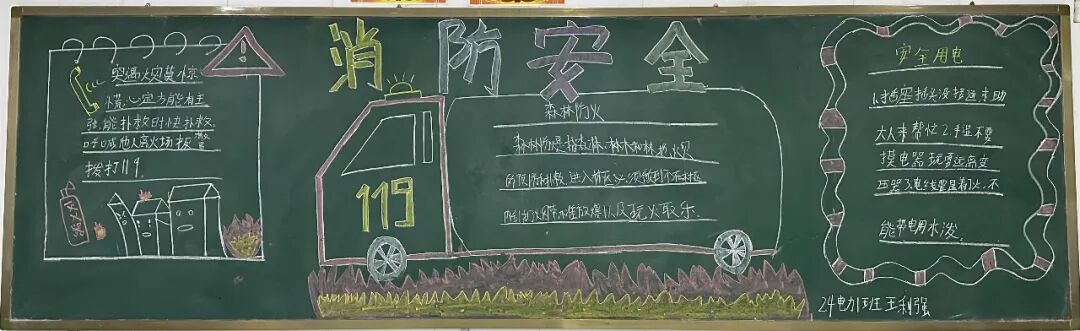 消防安全
突遇火灾莫惊
慌，心定方能有主
张，能扑救时快扑救，
呼喊他人离火场报警
拨打119.
灭火
119
森林防火
森林防火是指森林、林木和林地火灾
的预防和扑救，进入林区，必须做到不在林区
吸烟
火
放爆以及玩火取乐.
安全用电
1.插座插头没接通求助
大人来帮忙2.手湿不要
摸电器玩耍远离变
压器3.电线要是着火，不
能带电用水泼.
24电力1班王利强